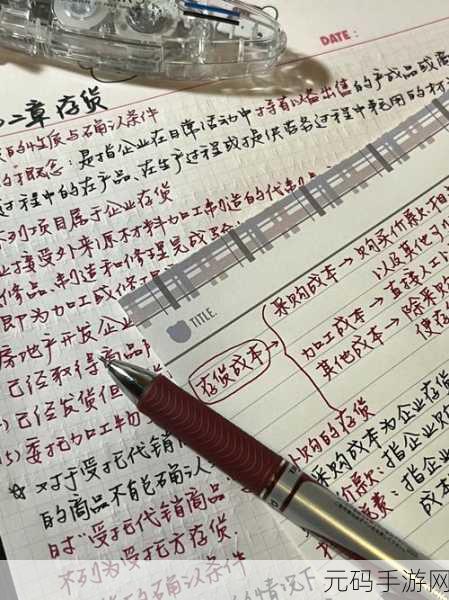 DATE:
二章 存货
的性质与确认条件
的概念：是指企业在日常活动中持有以备出售的产成品或商
过程中的在产品、在生产过程或提供劳务过程中耗用的材
列项目属于企业存货
接受外来原材料加工制造的代制品
修品，制造和修理完成
即为加工或修
房地产开发企业
已经取得商品
已经发货但
委托加工物
☆ 对于受托代销商品
的商品不能确认
时"受托代销商品
不列为受托方存货
的确认条件
的情况下
TITLE.
存货成本
采购成本 → 购买价款、相
以及其他可
加工成本 → 直接人工
其他成本 → 除采购
使存
外购的存货
采购成本为企业存货
价款：指企业
费：指企业
成本
元码手游网